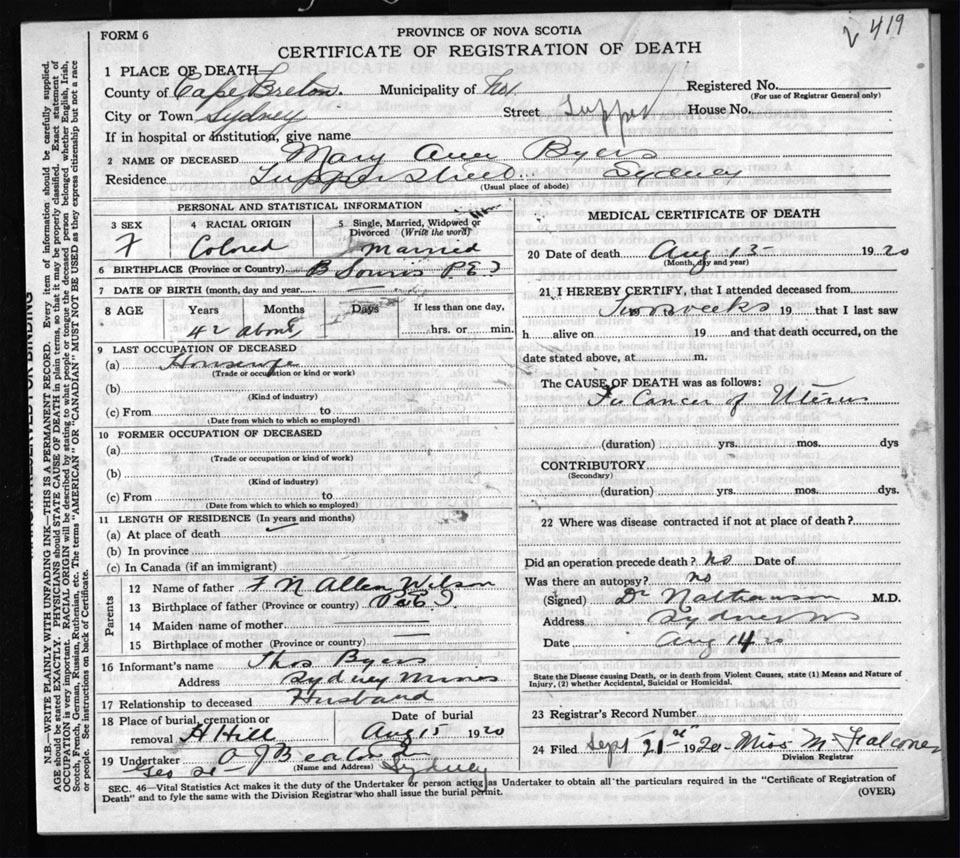 419
FORM 6
PROVINCE OF NOVA SCOTIA
CERTIFICATE OF REGISTRATION OF DEATH
1 PLACE OF DEATH
County of Cape Breton. Municipality of
Registered No.
(For use of Registrar General only)
City or Town Sydney Street Tupper House No.
If in hospital or institution, give name
2 NAME OF DECEASED Mary Ann Byers
Residence Tupper Street Sydney
(Usual place of abode)
PERSONAL AND STATISTICAL INFORMATION
3 SEX 4 RACIAL ORIGIN 5 Single, Married, Widowed or Divorced (Write the word)
F Colored Married
6 BIRTHPLACE (Province or Country) Souris P E I
7 DATE OF BIRTH (month, day and year)
8 AGE Years Months Days If less than one day,
42 about hrs. or min.
9 LAST OCCUPATION OF DECEASED
(a) Housewife
(Trade or occupation or kind or work)
(b)
(Kind of industry)
(c) From to
(Date from which to which so employed)
10 FORMER OCCUPATION OF DECEASED
(a)
(Trade or occupation or kind of work)
(b)
(Kind of industry)
(c) From to
(Date from which to which so employed)
11 LENGTH OF RESIDENCE (In years and months)
(a) At place of death
(b) In province
(c) In Canada (if an immigrant)
Parents
12 Name of father F N Allen Wilson
13 Birthplace of father (Province or country) P E I
14 Maiden name of mother
15 Birthplace of mother (Province or country)
16 Informant's name Thos Byers
Address Sydney Mines
17 Relationship to deceased Husband
18 Place of burial, cremation or removal H Hill
Date of burial
Aug 15 1920
19 Undertaker A J Beaton
(Name and Address)
Geo St Sydney
MEDICAL CERTIFICATE OF DEATH
20 Date of death Aug 13 1920
(Month, day and year)
21 I HEREBY CERTIFY, that I attended deceased from
Two weeks 19 that I last saw
h alive on 19 and that death occurred, on the
date stated above, at m.
The CAUSE OF DEATH was as follows:
Cancer of Uterus
(duration) yrs. mos. dys
CONTRIBUTORY
(Secondary)
(duration) yrs. mos. dys.
22 Where was disease contracted if not at place of death?
Did an operation precede death? no Date of
Was there an autopsy? no
(Signed) Dr Nathanson M.D.
Address Sydney NS
Date Aug 14 20
State the Disease causing Death, or in death from Violent Causes, state (1) Means and Nature of
Injury, (2) whether Accidental, Suicidal or Homicidal.
23 Registrar's Record Number
24 Filed Sept 21st 1920 Miss M Falconer
Division Registrar
SEC. 46—Vital Statistics Act makes it the duty of the Undertaker or person acting as Undertaker to obtain all the particulars required in the "Certificate of Registration of
Death" and to fyle the same with the Division Registrar who shall issue the burial permit.
(OVER)
N.B.—WRITE PLAINLY WITH UNFADING INK—THIS IS A PERMANENT RECORD. Every item of information should be carefully supplied.
AGE should be stated EXACTLY. PHYSICIANS should STATE CAUSE OF DEATH in plain terms, so that it may be properly classified. Exact statement of
OCCUPATION is very important. RACIAL ORIGIN will be described by stating to what people or tongue the deceased person belonged whether English, Irish,
Scotch, French, German, Russian, Ruthenian, etc. The terms "AMERICAN" or "CANADIAN" MUST NOT BE USED as they express citizenship but not a race
or people. See instructions on back of Certificate.